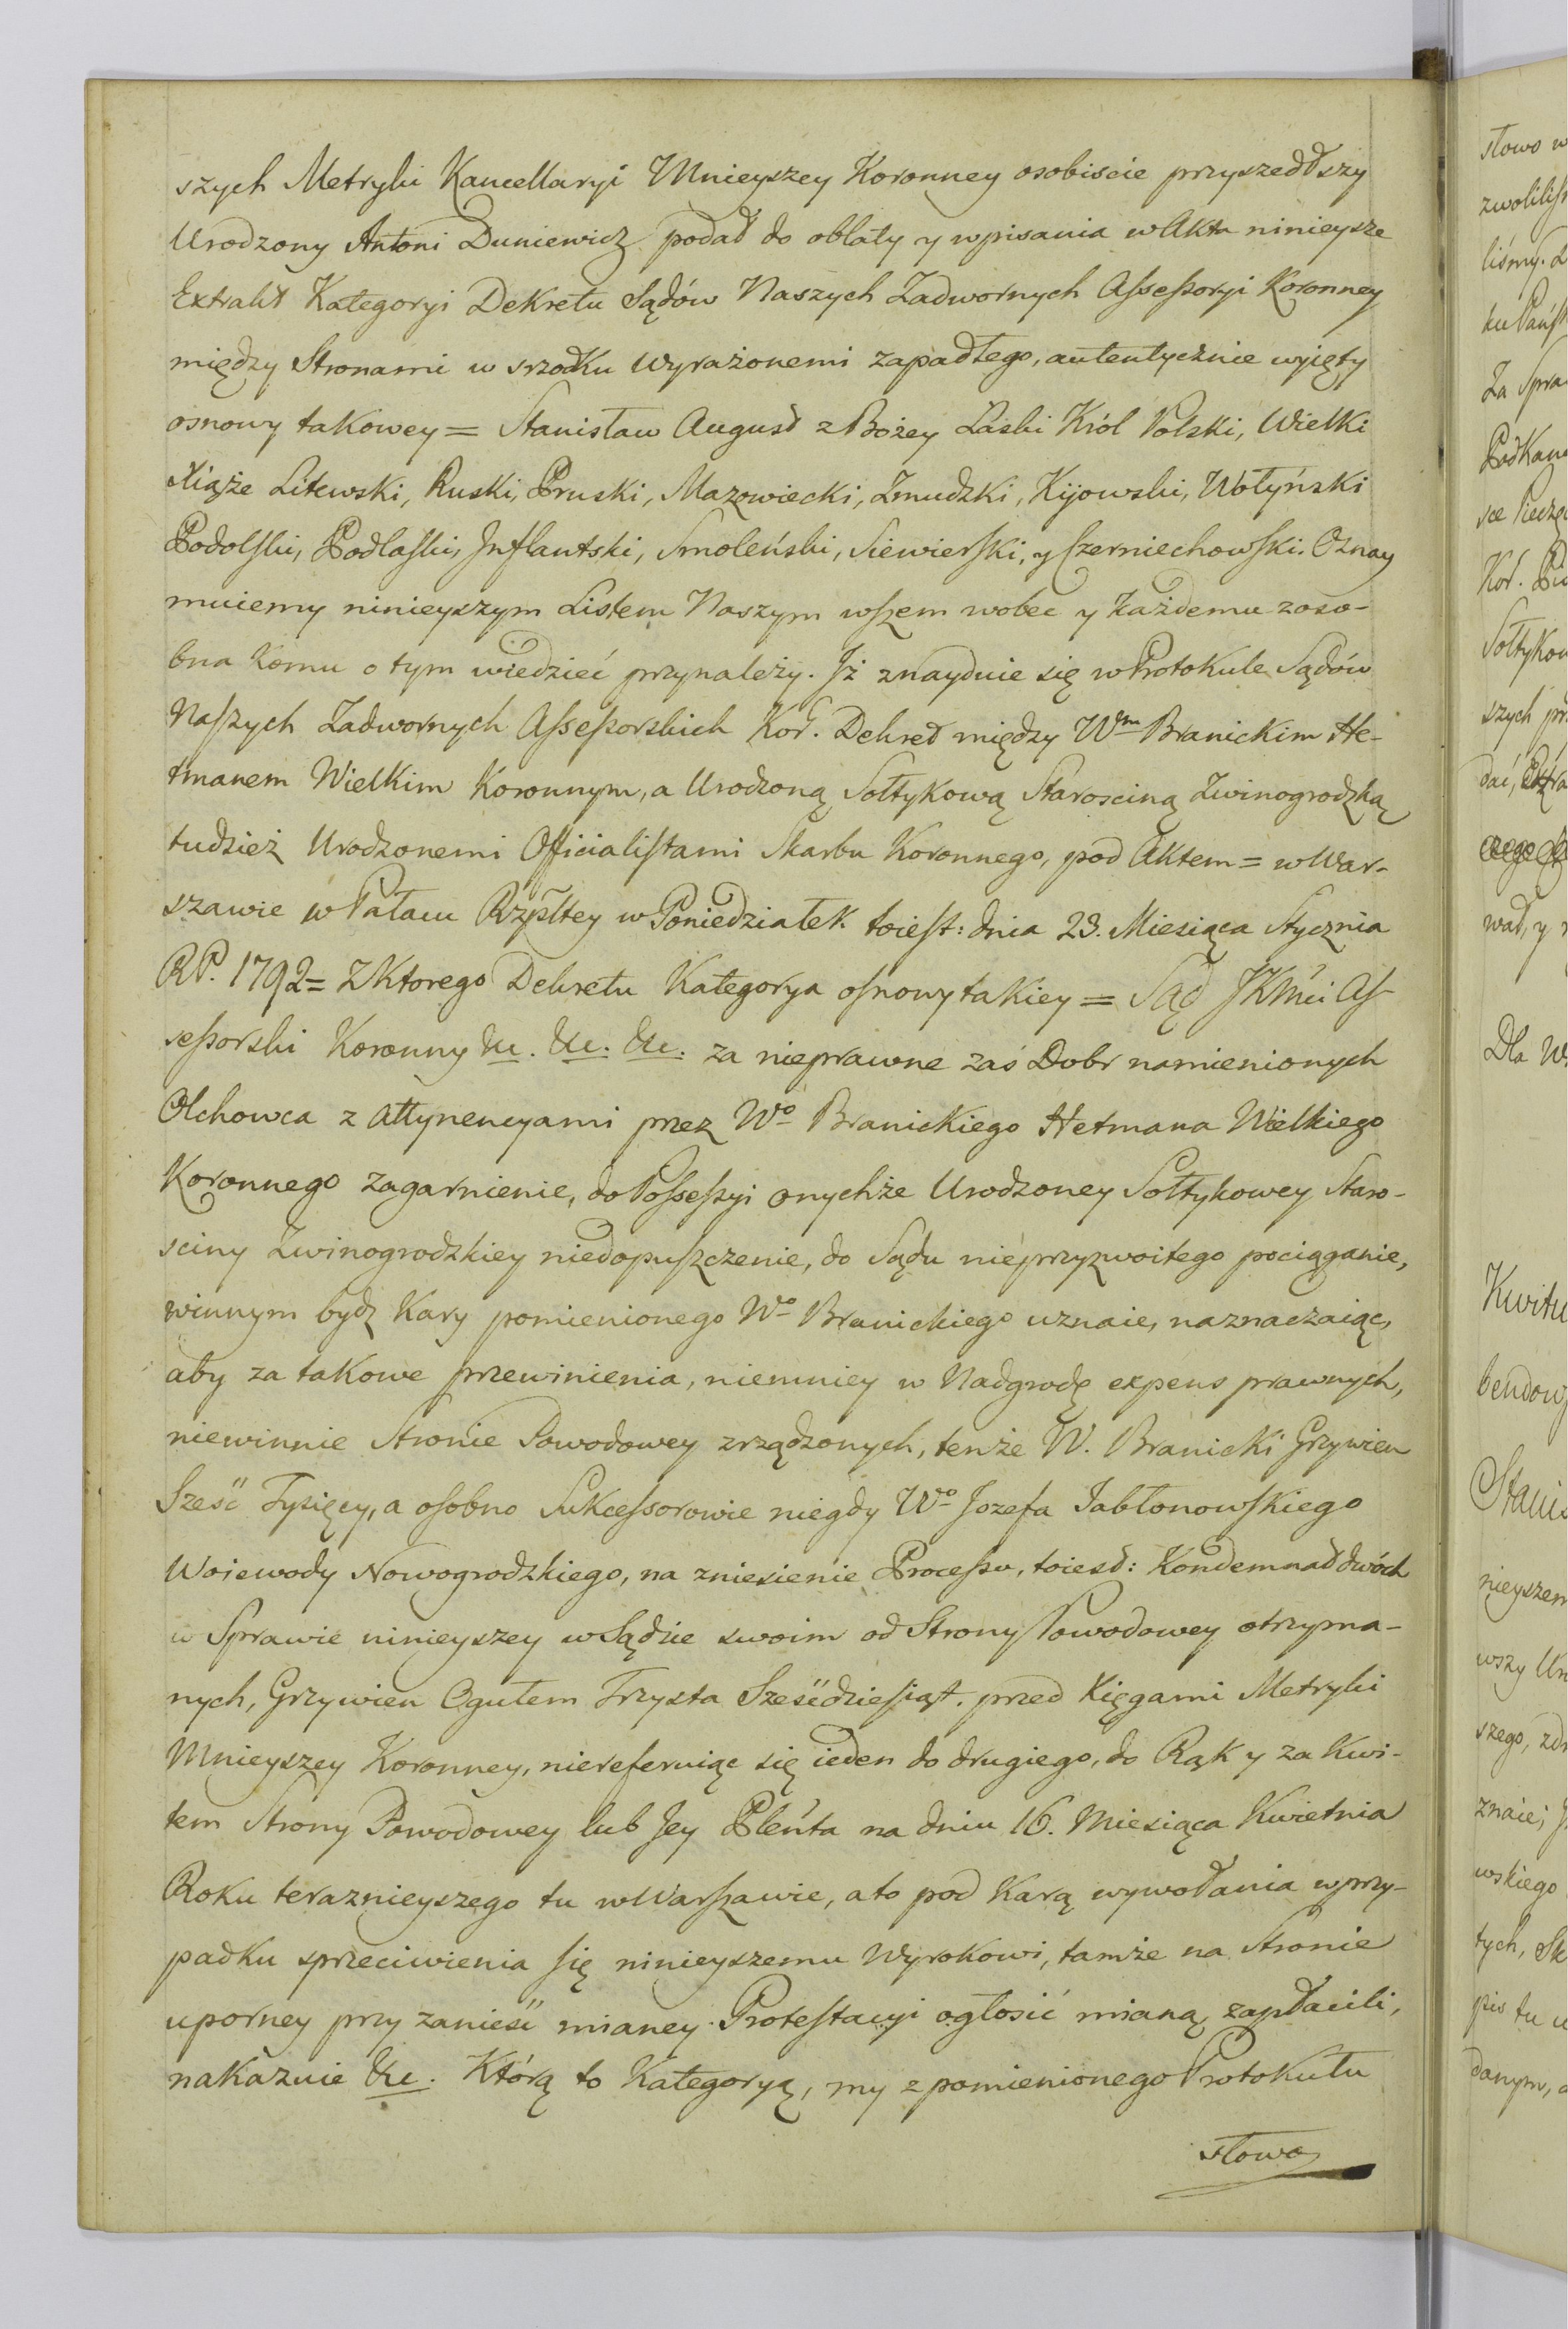 szych Metryki Kancellaryi Mnieyszey Koronney osobiscie przyszedłszy
Urodzony Antoni Duniewicz podał do oblaty y wpisania w Akta ninieysze
Extrakt Kategoryi Dekretu Sądów Naszych Zadwornych Assessoryi Koronney
między Stronami w srzodku wyrażonemi zapadłego, autentycznie wyjęty
osnowy takowey = Stanisław August z Bożey Łaski Król Polski, Wielki
Xiąże Litewski, Ruski, Pruski, Mazowiecki, Zmudzki, Kijowski, Wołyński
Podolski, Podlaski, Inflantski, Smoleński, Siewierski, y Czerniechowski. Oznay
muiemy ninieyszym Listem Naszym wszem wobec y każdemu zoso-
bna komu o tym wiedzieć przynależy. Iż znayduie się w Protokule Sądów
Naszych Zadwornych Assessorskich Kor. Dekret między Wm Branickim He-
tmanem Wielkim Koronnym, a Urodzoną Sołtykową Starosciną Zwinogrodzką
tudzież Urodzonemi Officialistami Skarbu Koronnego, pod Aktem = w War-
szawie w Pałacu Rzpltey w Poniedziałek toiest: dnia 23. Miesiąca Stycznia
RP. 1792 = Z Ktorego Dekretu Kategorya osnowy takiey = Sąd JKMci As-
sessorski Koronny &c. &c. &c. za nieprawne zaś Dobr namienionych
Olchowca z Attynencyami przez Wo Branickiego Hetmana Wielkiego
Koronnego zagarnienie, do Possessyi onychże Urodzoney Sołtykowey Staro-
sciny Zwinogrodzkiey niedopuszczenie, do Sądu nieprzyzwoitego pociąganie,
winnym bydz Kary pomienionego Wo Branickiego uznaie, naznaczaiąc,
aby za takowe przewinienia, niemniey w Nadgrodę expens prawnych,
niewinnie Stronie Powodowey zrządzonych, tenże W. Branicki Grzywien
Sześć Tysięcy, a osobno Sukcessorowie niegdy Wo Jozefa Jabłonowskiego
Woiewody Nowogrodzkiego, na zniesienie Processu, toiest: Kondemnat dwóch
w Sprawie ninieyszey w Sądzie swoim od Strony Powodowey otrzyma-
nych, Grzywien Ogułem Trzysta Sześćdziesiąt. przed Xięgami Metryki
Mnieyszey Koronney, niereferuiąc się ieden do drugiego, do Rąk y za Kwi-
tem Strony Powodowey lub Jey Plenta na dniu 16. Miesiąca Kwietnia
Roku teraznieyszego tu w Warszawie, a to pod Karą wywołania w przy-
padku sprzeciwienia się ninieyszemu Wyrokowi, tamże na Stronie
uporney przy zanieść mianey Protestacyi ogłosić mianą zapłacili,
nakazuie &c. Którą to Kategoryą, my z pomienionego Protokułu
słowo